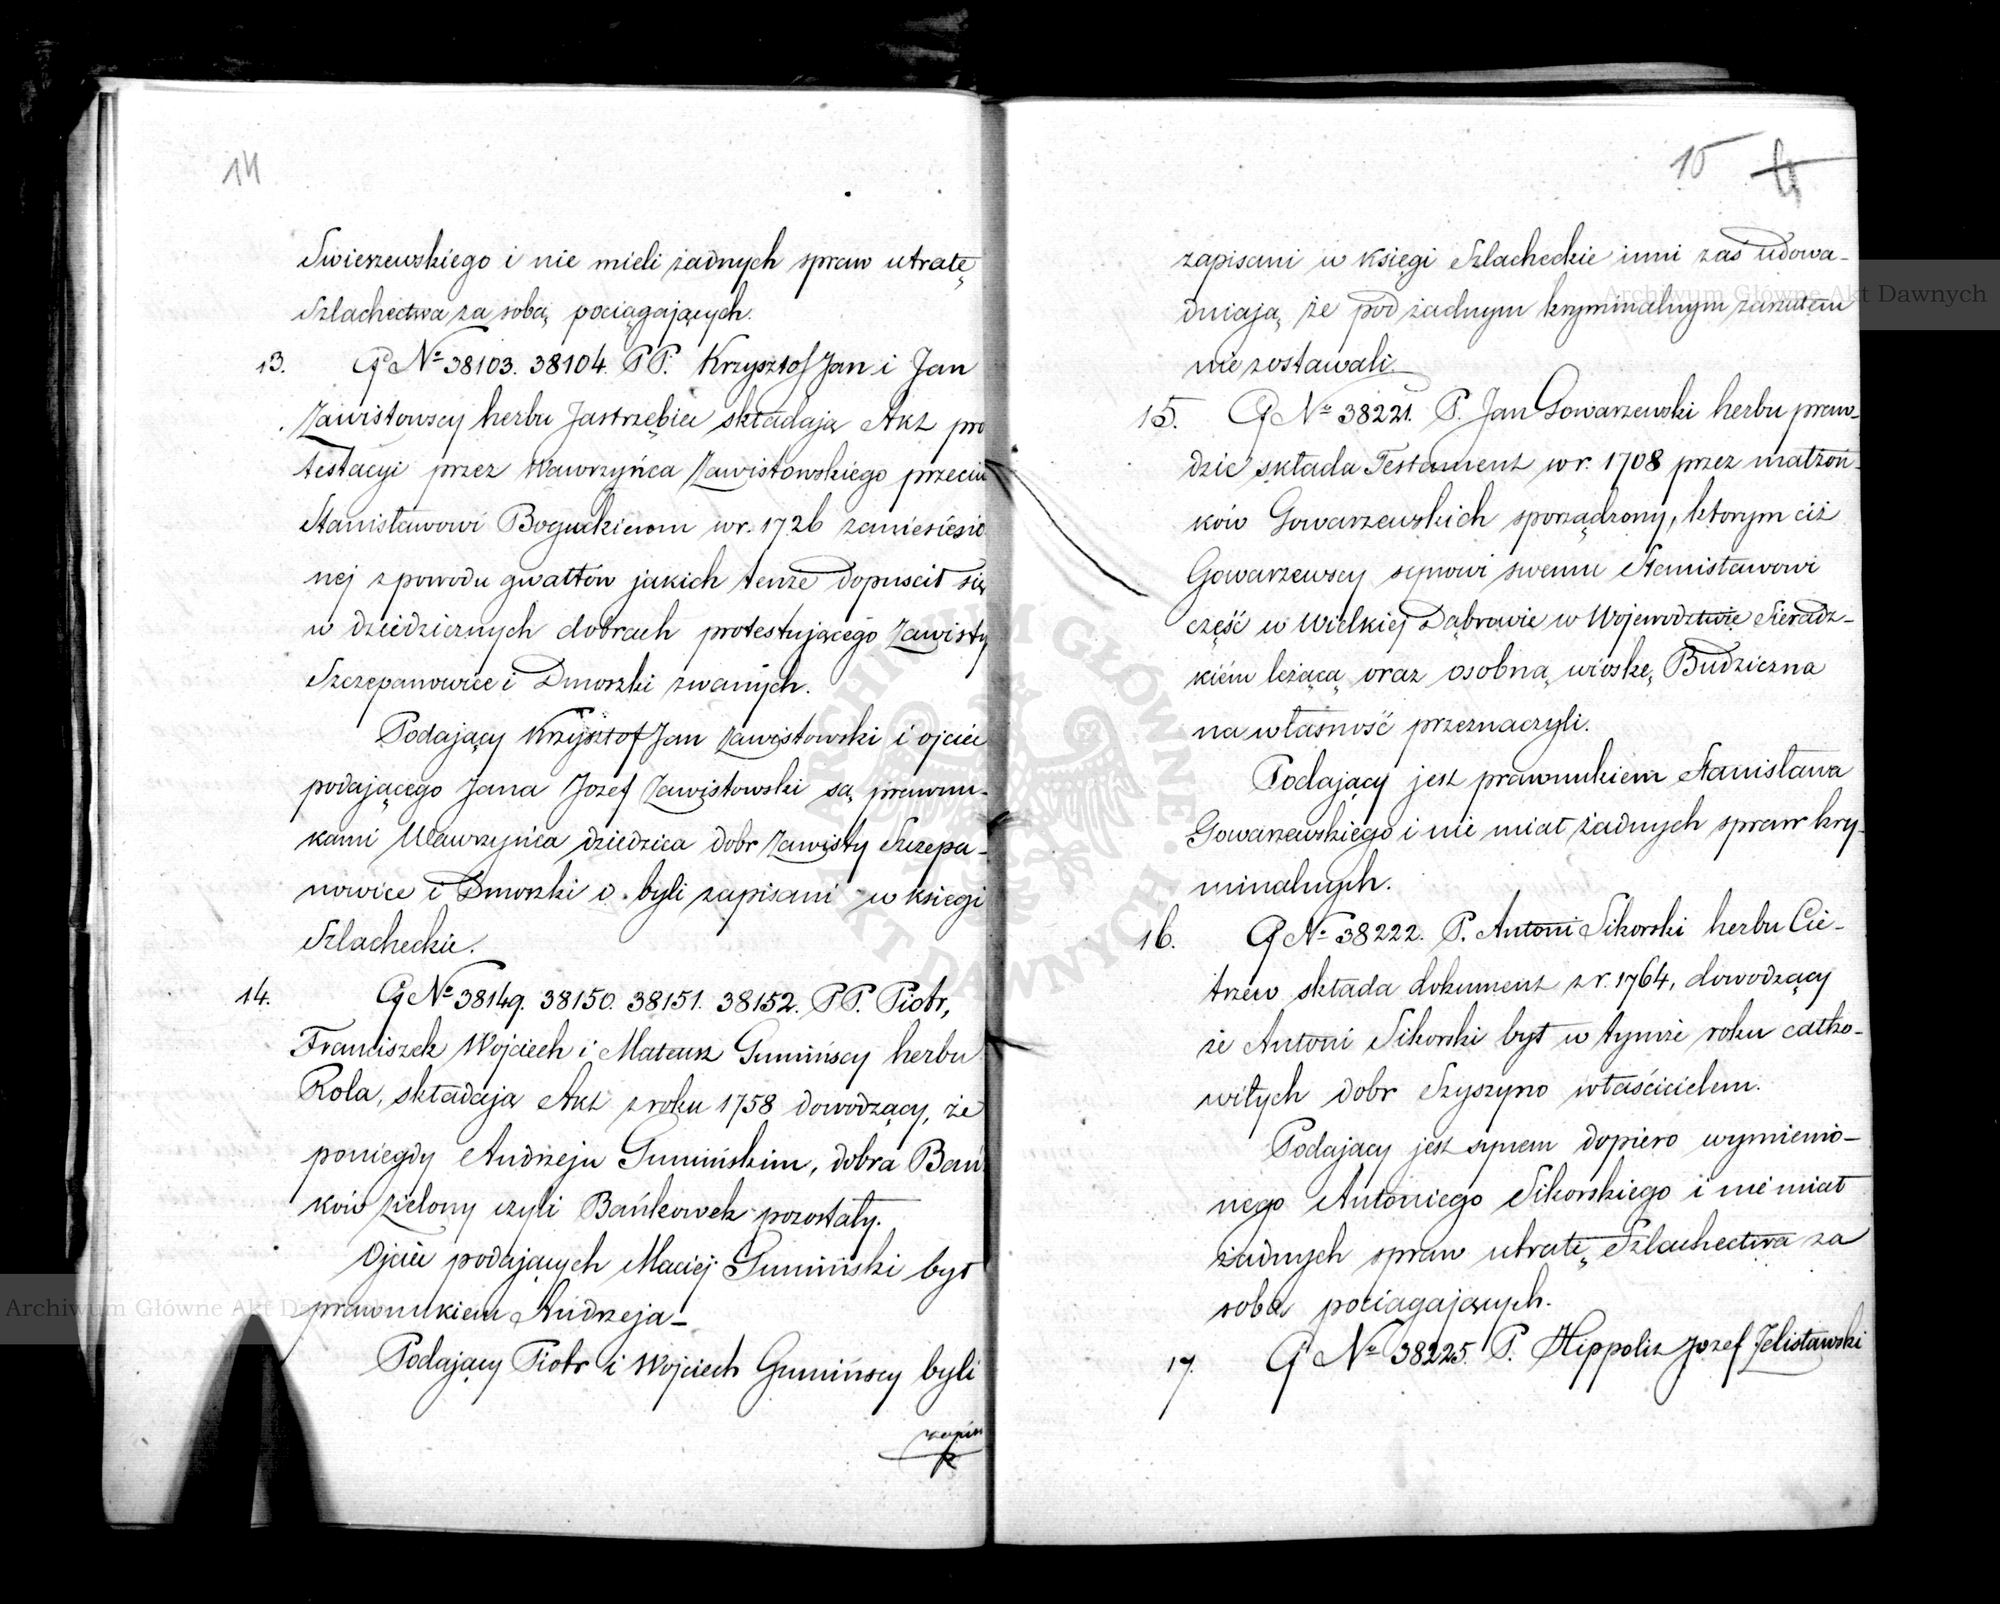 14
Swierzewskiego i nie mieli żadnych spraw utratę
Szlachectwa za sobą pociągających.
13. G No 38103. 38104. PP. Krzysztof Jan i Jan
Zawistowscy herbu Jastrzębiec składają Akt pro
testacyi przez Wawrzyńca Zawistowskiego przeciw
Stanisławowi Boguckiemu w r. 1726 zaniesio
nej z powodu gwałtów jakich tenże dopuscił się
w dziedzicznych dobrach protestującego Zawisty
Szczepanowice i Dworzki zwanych.
Podający Krzysztof Jan Zawistowski i ojciec
podającego Jana Jozef Zawistowski są prawnu-
kami Wawrzyńca dziedzica dobr Zawisty Szczepa-
nowice i Dworzki i byli zapisani w księgi
Szlacheckie.
14. G No 38149. 38150. 38151. 38152. PP. Piotr,
Franciszek Wojciech i Mateusz Gumińscy herbu
Rola, składają Akt z roku 1758 dowodzący, że
poniegdy Andrzeju Gumińskim, dobra Bań
ków Zielony czyli Bańkowek pozostały.
Ojciec podających Maciej Gumiński był
prawnukiem Andrzeja_
Podający Piotr i Wojciech Gumińscy byli
zapis
15
zapisani w księgi Szlacheckie inni zaś udowa-
dniają, że pod żadnym kryminalnym zarzutem
nie zostawali.
15. G No 38221. P. Jan Gowarzewski herbu praw-
dzic składa Testament w r. 1708 przez małżon-
ków Gowarzewskich sporządzony, ktorym ciż
Gowarzewscy synowi swemu Stanisławowi
część w Wielkiej Dąbrowie w Wojewodztwie Sieradz-
kiém leżącą oraz osobną wioskę Budziczna
na własność przeznaczyli.
Podający jest prawnukiem Stanisława
Gowarzewskiego i nie miał żadnych spraw kry-
minalnych.
16. G No 38222. P. Antoni Sikorski herbu Cie-
trzew składa dokument z r. 1764, dowodzący
że Antoni Sikorski był w tymże roku całko-
witych dobr Szyszyno właścicielem.
Podający jest synem dopiero wymienio-
nego Antoniego Sikorskiego i nie miał
żadnych spraw utratę Szlachectwa za
sobą pociągających.
17. G No 38225. P. Hippolit Jozef Jelisławski
Archiwum Główne Akt Dawnych
Archiwum Główne Akt Dawnych
ARCHIWUM GŁÓWNE AKT DAWNYCH